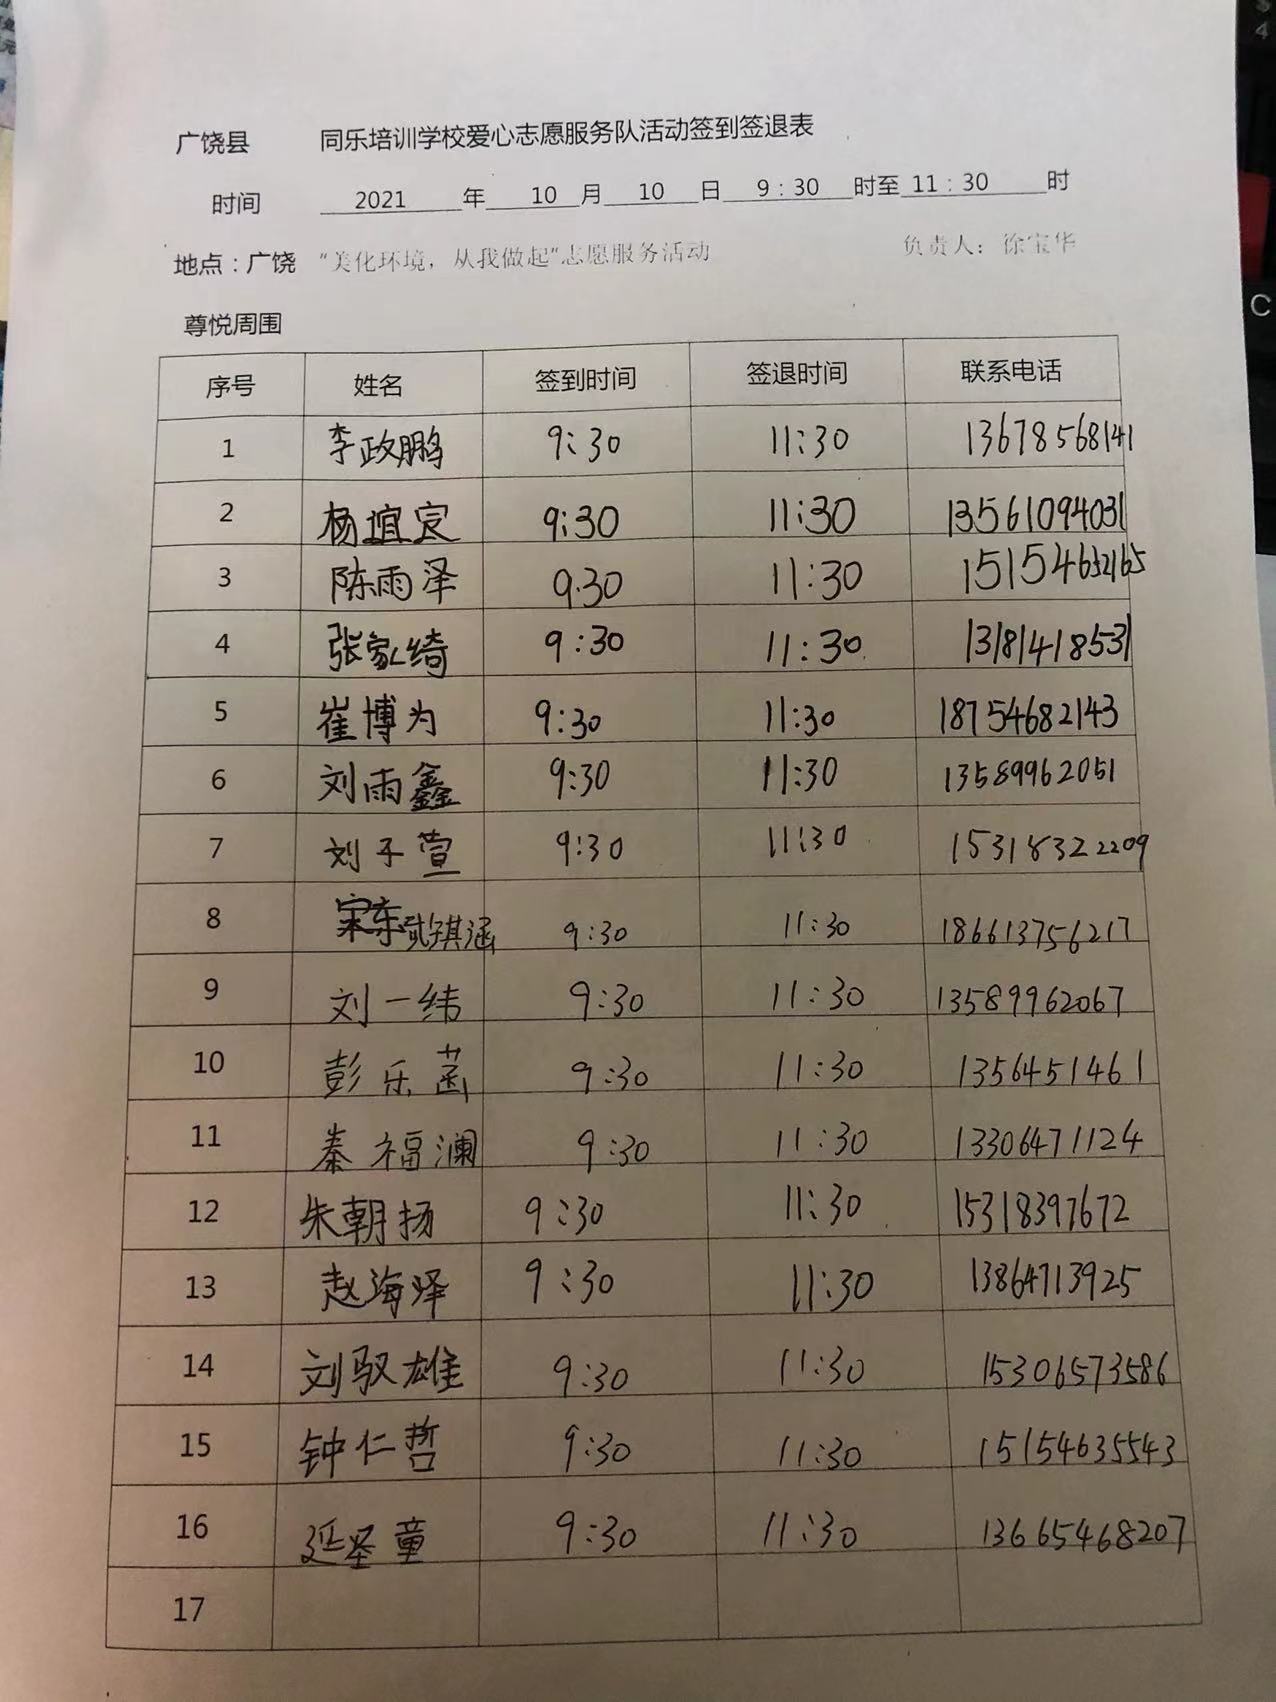 广饶县 同乐培训学校爱心志愿服务队活动签到签退表
时间 2021 年 10 月 10 日 9：30 时至 11：30 时
地点：广饶 “美化环境，从我做起”志愿服务活动 负责人：徐宝华
尊悦周围
序号 姓名 签到时间 签退时间 联系电话
1 李政鹏 9:30 11:30 13678568141
2 杨谊宸 9:30 11:30 13561094031
3 陈雨泽 9.30 11:30 15154632165
4 张家绮 9:30 11:30 13181418531
5 崔博为 9:30 11:30 18754682143
6 刘雨鑫 9:30 11:30 13589962051
7 刘子萱 9:30 11:30 15318322209
8 武祺涵 9:30 11:30 186613756217
9 刘一纬 9:30 11:30 13589962067
10 彭乐菡 9:30 11:30 1356451461
11 秦福澜 9:30 11:30 13306471124
12 朱朝扬 9:30 11:30 15318397672
13 赵海泽 9:30 11:30 13864713925
14 刘驭雄 9:30 11:30 15306573586
15 钟仁哲 9:30 11:30 15154635543
16 延坚童 9:30 11:30 13665468207
17